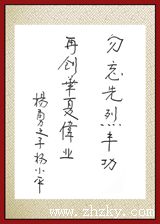 勿忘先烈丰功
再创華夏偉业
楊勇之子杨小平
www.zhzky.com